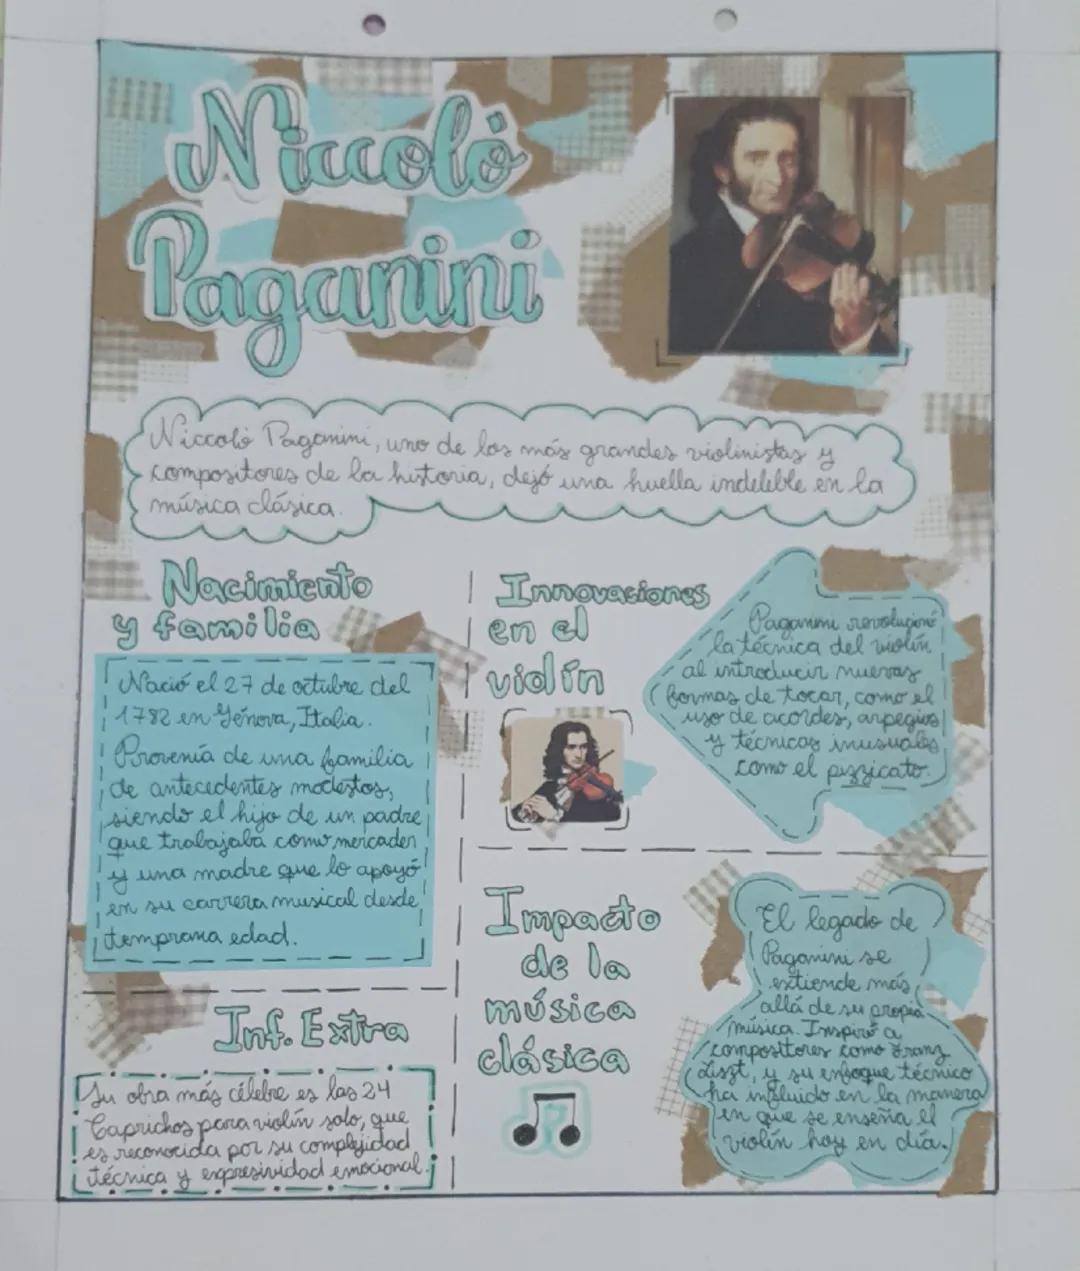 Niccolò
Paganini
Niccoló Paganini, uno de los más grandes violinistas y
compositores de la historia, dejó una huella indeleble en la
música clásica.
Nacimiento
y familia
Nació el 27 de octubre del
1782 en Génova, Italia.
Provenía de una familia
de antecedentes modestos,
siendo el hijo de un padre
que trabajaba como mercader
y una madre que lo apoyó
en su carrera musical desde
temprana edad.
Inf. Extra
Su obra más célebre es las 24
Caprichos para violín solo, que
es reconocida por su complejidad
técnica y expresividad emocional.
Innovaciones
en el
violín
Paganini revolucionó
la técnica del violín
al introducir nuevas
formas de tocar, como el
uso de acordes, arpegios
y técnicas inusuales
como el pizzicato.
Impacto
de la
música
clásica
El legado de
Paganini se
extiende más
allá de su propia
música. Inspiró a
compositores como Franz
Liszt, y su enfoque técnico
ha influido en la manera
en que se enseña el
violín hoy en día.